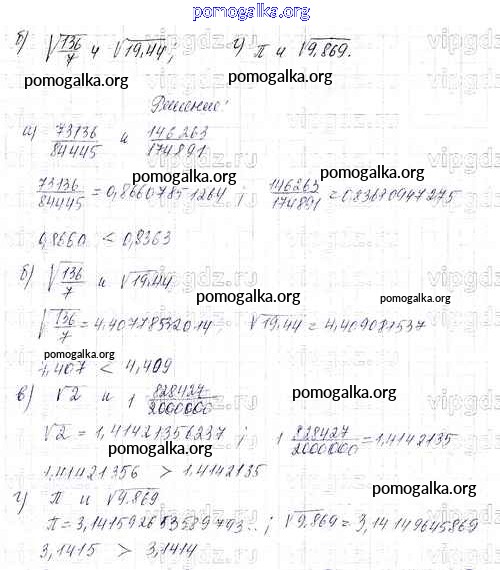 pomogalka.org
б) √136/7 и √19,44; г) π и √9,869.
pomogalka.org pomogalka.org
Решение:
а) 73136/84445 и 146263/174891
pomogalka.org
73136/84445 = 0,86607851264; 146263/174891 = 0,83630947275
0,8660 < 0,8363
б) √136/7 и √19,44
pomogalka.org pomogalka.org
√136/7 = 4,40778532014; √19,44 = 4,409081537
pomogalka.org
4,407 < 4,409
в) √2 и 1 828427/2000000
pomogalka.org
√2 = 1,41421356237; 1 828427/2000000 = 1,4142135
pomogalka.org
1,41421356 > 1,4142135
г) π и √9,869
pomogalka.org
π = 3,141592653589793...; √9,869 = 3,14149645869
3,1415 > 3,1414
pomogalka.org